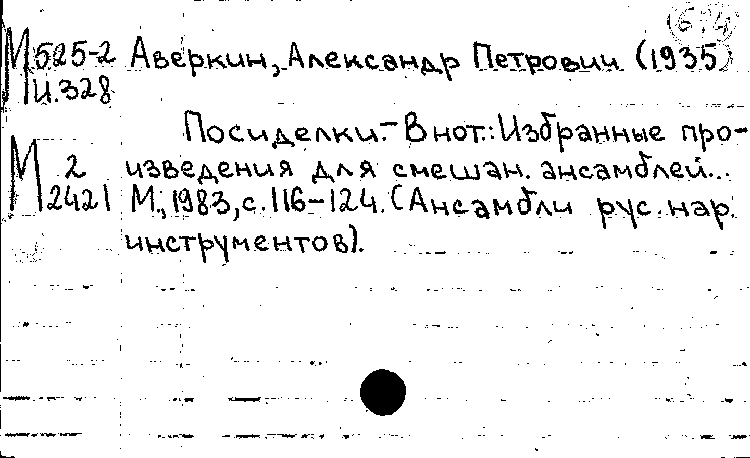 М 525-2 Аверкин, Александр Петрович (1935)
И.328
Посиделки.- В нот.: Избранные про-
М 2 изведения для смешан. ансамблей...
2421 М., 1983, с. 116-124. (Ансамбли рус. нар.
инструментов).